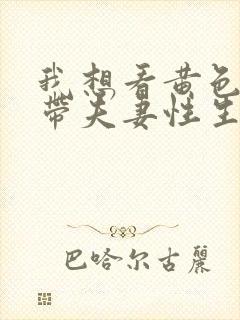 我想看黄色
带夫妻性生
巴哈尔古丽